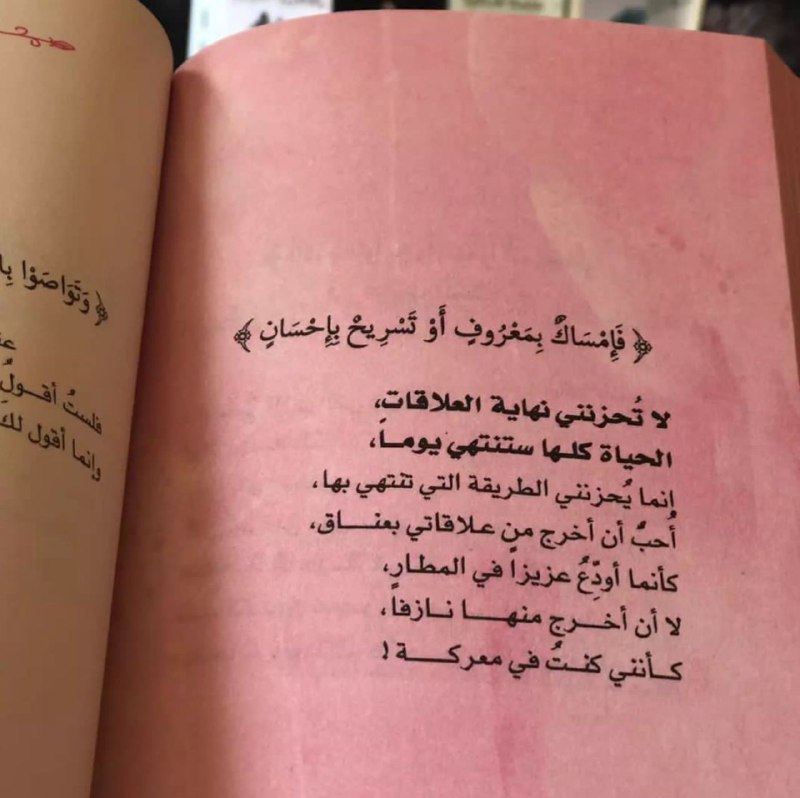 ﴿ فَإِمْسَاكٌ بِمَعْرُوفٍ أَوْ تَسْرِيحٌ بِإِحْسَانٍ ﴾
لا تُحزنني نهاية العلاقات،
الحياة كلها ستنتهي يوماً،
إنما يُحزنني الطريقة التي تنتهي بها،
أُحبُّ أن أخرج من علاقاتي بعناق،
كأنما أودِّعُ عزيزاً في المطارِ،
لا أن أخرج منها نازفاً،
كأنني كنتُ في معركة !
﴿ وَتَوَاصَوْا
فلستُ أقولُ
وإنما أقول لك